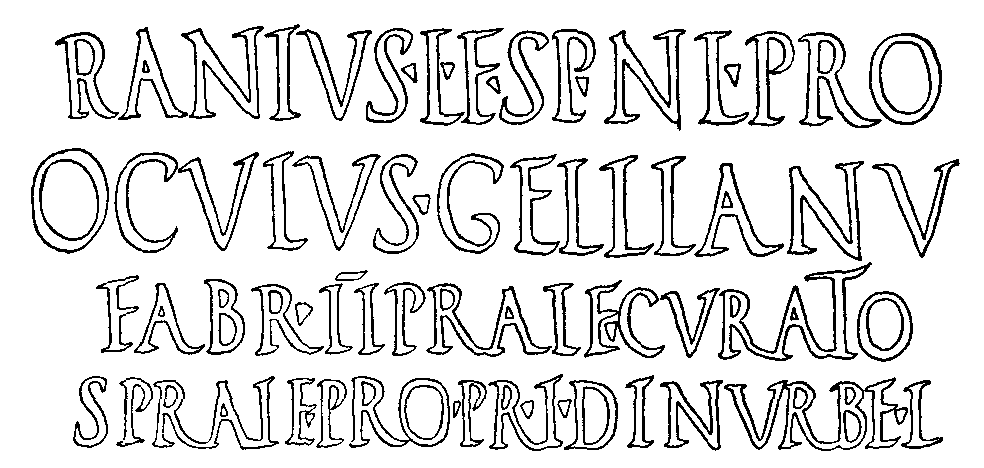 RANIVS·L·E·SP·N·L·PRO
OCVIVS·GELLIANV
FABR·ĪI PRAIE·CVRATO
S PRAIE·PRO·PR·I·D IN VRBE·L